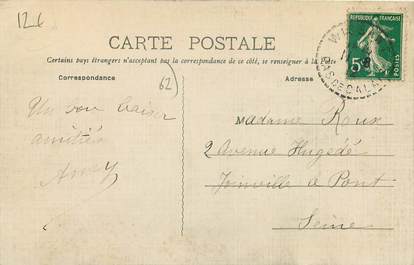 12 €
CARTE POSTALE
Certains pays étrangers n'acceptant pas la correspondance de ce côté, se renseigner à la Poste
Correspondance
62
Adresse
REPUBLIQUE FRANÇAISE
5c
POSTES
PAS DE CALAIS
Un bon baiser
amitiés
Madame Roux
2 Avenue
Joinville le Pont
Seine